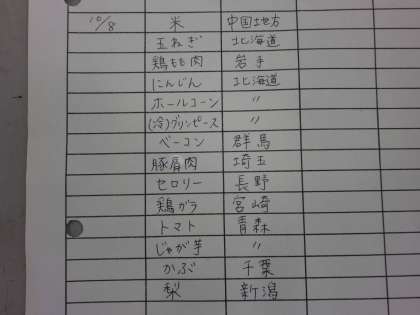 10/8 米 中国地方
玉ねぎ 北海道
鶏もも肉 岩手
にんじん 北海道
ホールコーン 〃
(冷)グリンピース 〃
ベーコン 群馬
豚肩肉 埼玉
セロリー 長野
鶏ガラ 宮崎
トマト 青森
じゃが芋 〃
かぶ 千葉
梨 新潟